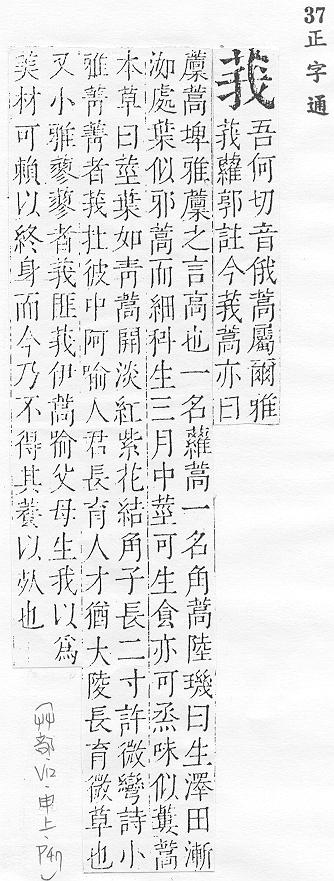 37正字通
莪
吾何切音俄蒿屬爾雅
莪蘿郭註今莪蒿亦曰
藨蒿埤雅藨之言高也一名蘿蒿一名角蒿陸璣曰生澤田漸
洳處葉似邪蒿而細科生三月中莖可生食亦可烝味似蔞蒿
本草曰莖葉如靑蒿開淡紅紫花結角子長二寸許微彎詩小
雅菁菁者莪在彼中阿喻人君長育人才猶大陵長育微草也
又小雅蓼蓼者莪匪莪伊蒿喻父母生我以爲
美材可賴以終身而今乃不得其養以死也
(艸部.V12.申上.P47)